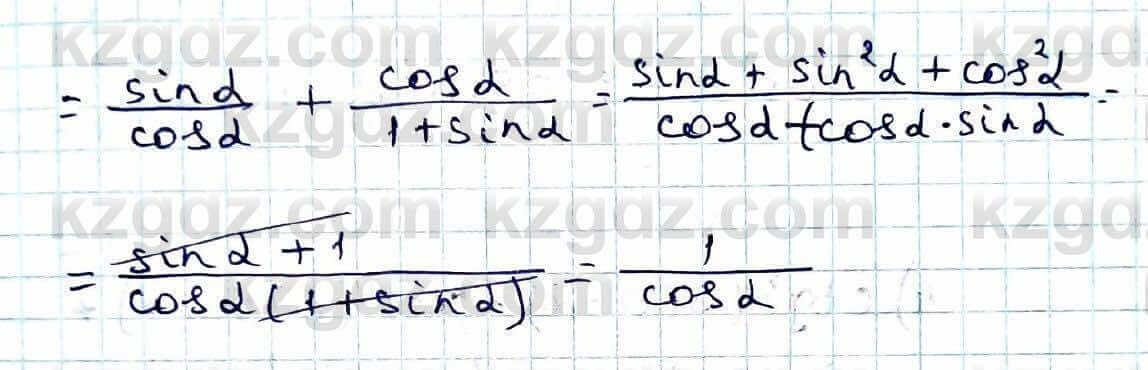 kzgdz.com kzgdz.com kzgd
= sinα/cosα + cosα/(1+sinα) = (sinα + sin²α + cos²α)/(cosα + cosα·sinα) =
kzgdz.com
kzgdz.com kzgdz.com kzgd
= (sinα + 1)/(cosα(1+sinα)) = 1/cosα
kzgdz.com